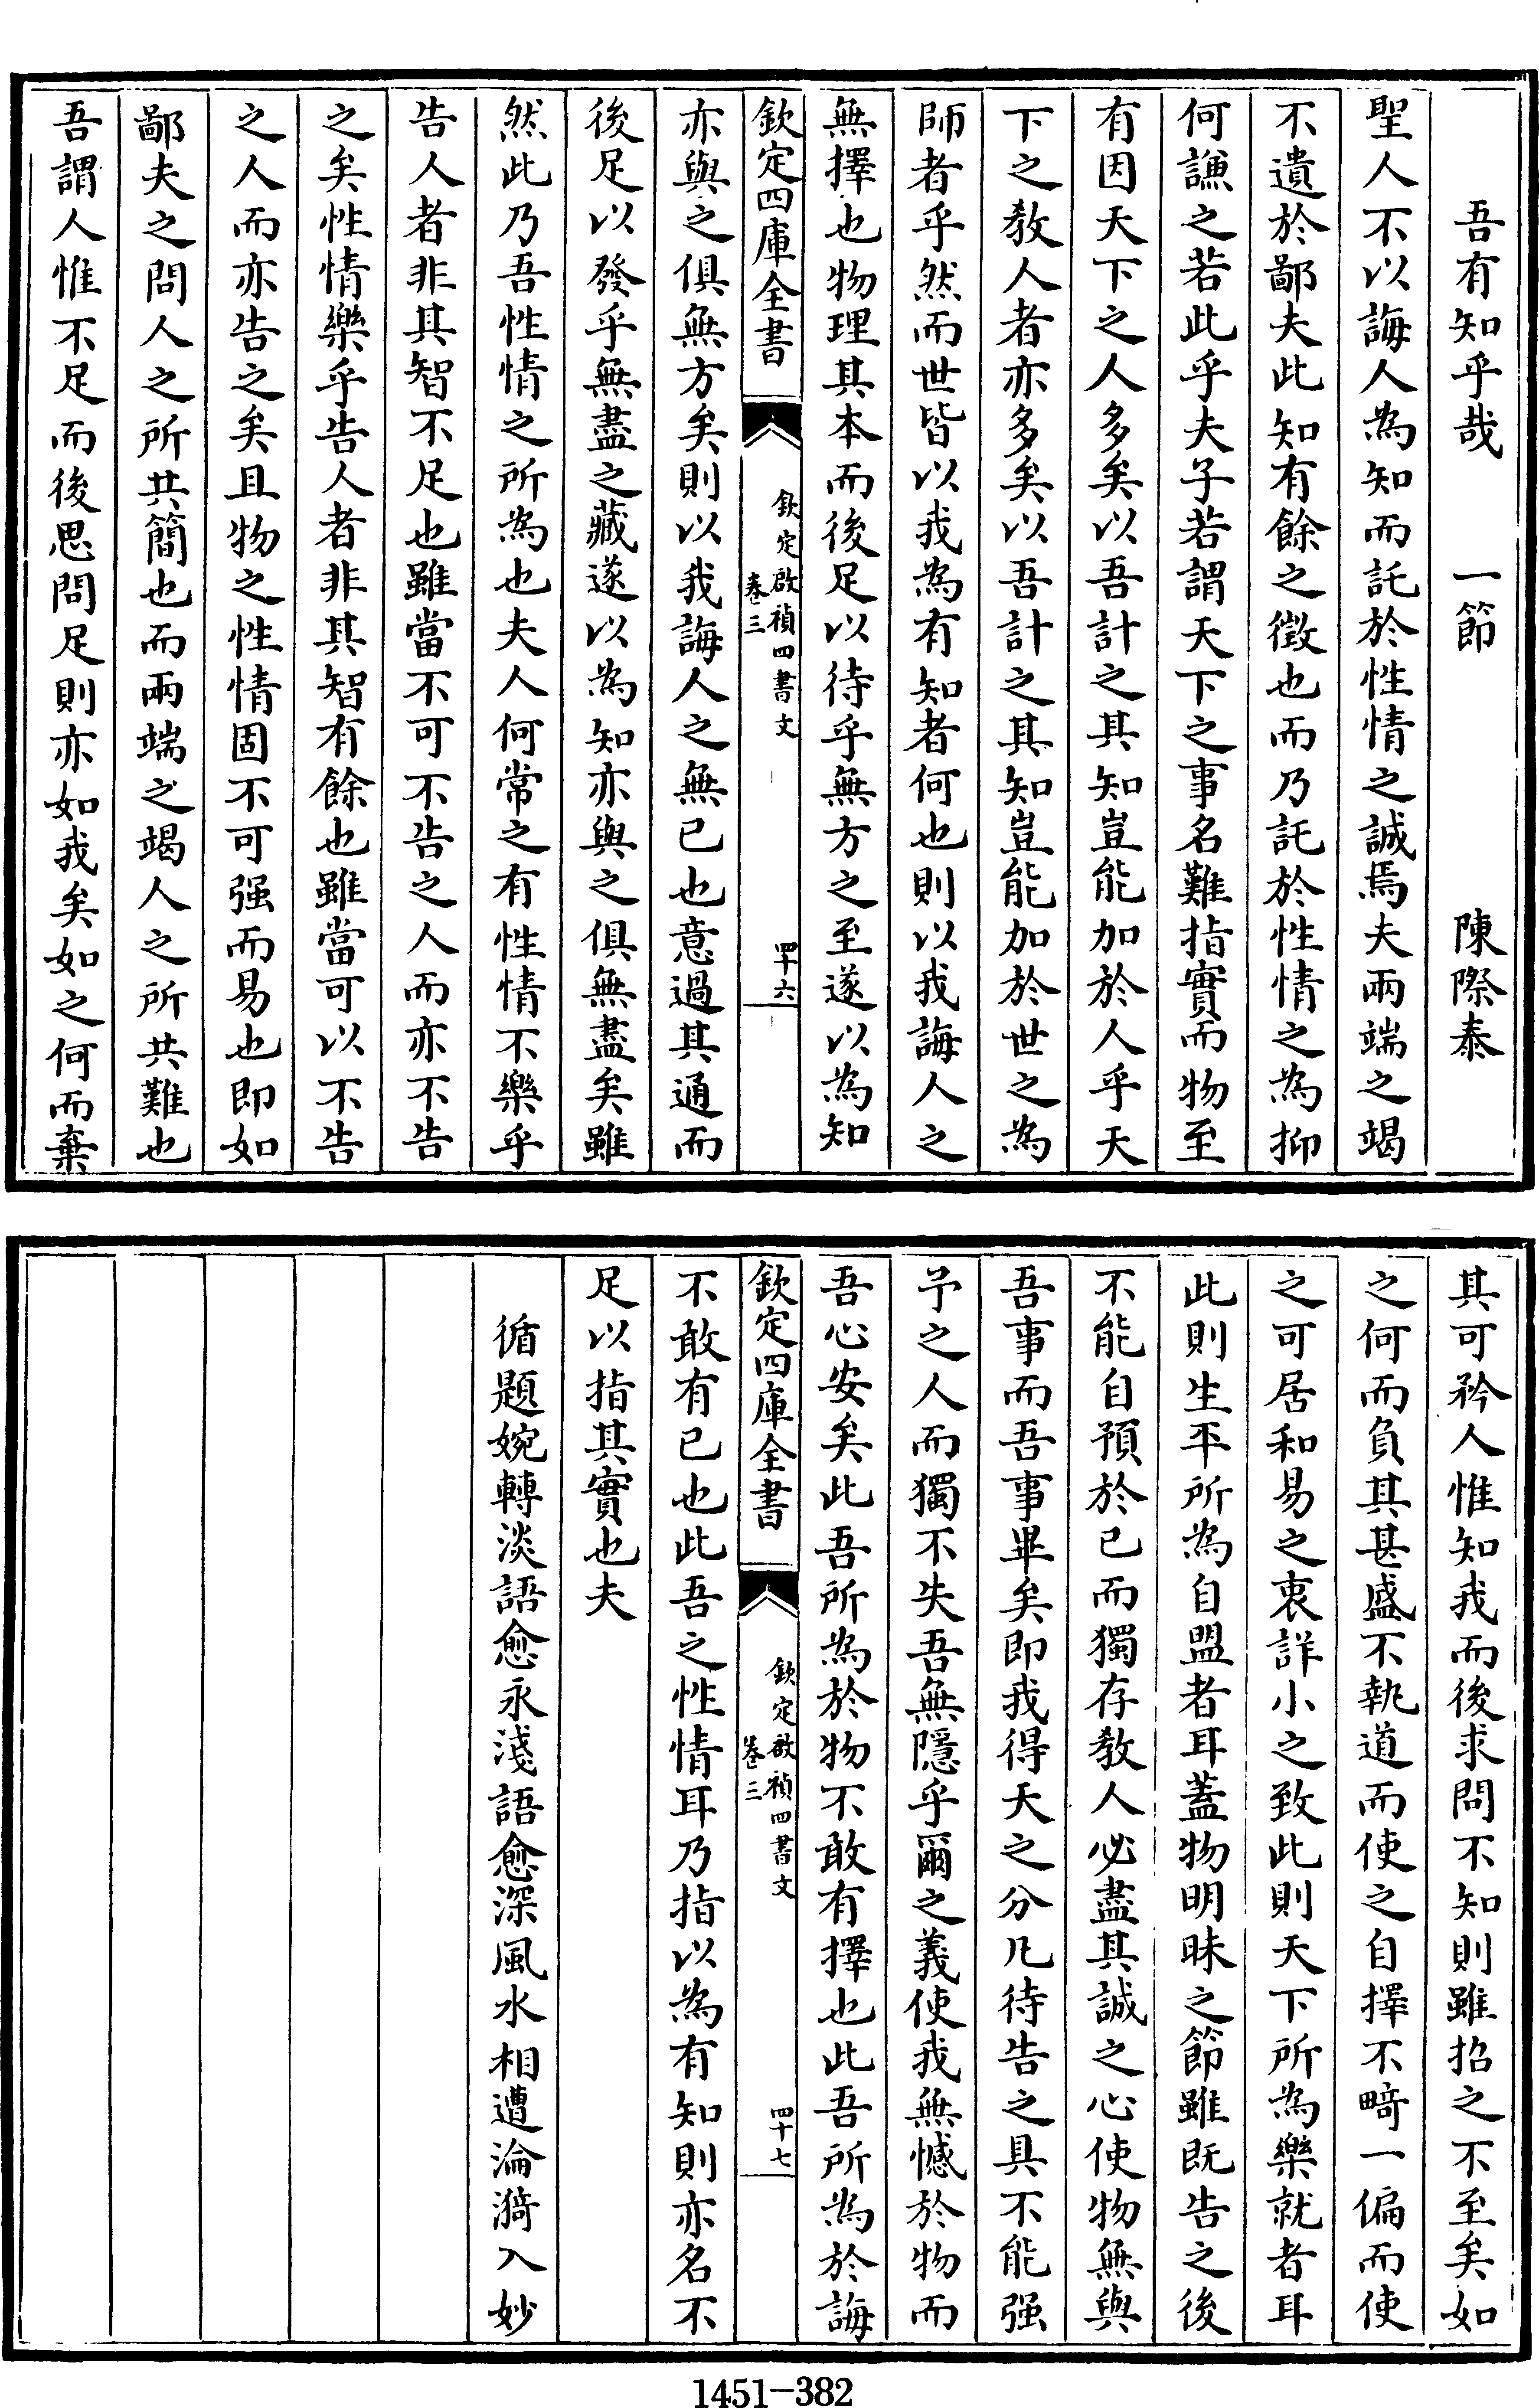 吾有知乎哉　一節　陳際泰
聖人不以誨人為知而託於性情之誠焉夫兩端之竭
不遺於鄙夫此知有餘之徵也而乃託於性情之為抑
何謙之若此乎夫子若謂天下之事名難指實而物至
有因天下之人多矣以吾計之其知豈能加於人乎天
下之教人者亦多矣以吾計之其知豈能加於世之為
師者乎然而世皆以我為有知者何也則以我誨人之
無擇也物理其本而後足以待乎無方之至遂以為知
欽定四庫全書
欽定啟禎四書文
卷三
四十六
亦與之俱無方矣則以我誨人之無已也意過其通而
後足以發乎無盡之藏遂以為知亦與之俱無盡矣雖
然此乃吾性情之所為也夫人何常之有性情不樂乎
告人者非其智不足也雖當不可不告之人而亦不告
之矣性情樂乎告人者非其智有餘也雖當可以不告
之人而亦告之矣且物之性情固不可强而易也即如
鄙夫之問人之所共簡也而兩端之竭人之所共難也
吾謂人惟不足而後思問足則亦如我矣如之何而棄
其可矜人惟知我而後求問不知則雖招之不至矣如
之何而負其甚盛不執道而使之自擇不畸一偏而使
之可居和易之衷詳小之致此則天下所為樂就者耳
此則生平所為自盟者耳蓋物明昧之節雖既告之後
不能自預於已而獨存教人必盡其誠之心使物無與
吾事而吾事畢矣即我得天之分凡待告之具不能强
予之人而獨不失吾無隱乎爾之義使我無憾於物而
吾心安矣此吾所為於物不敢有擇也此吾所為於誨
欽定四庫全書
欽定啟禎四書文
卷三
四十七
不敢有已也此吾之性情耳乃指以為有知則亦名不
足以指其實也夫
循題婉轉淡語愈永淺語愈深風水相遭淪漪入妙
1451-382